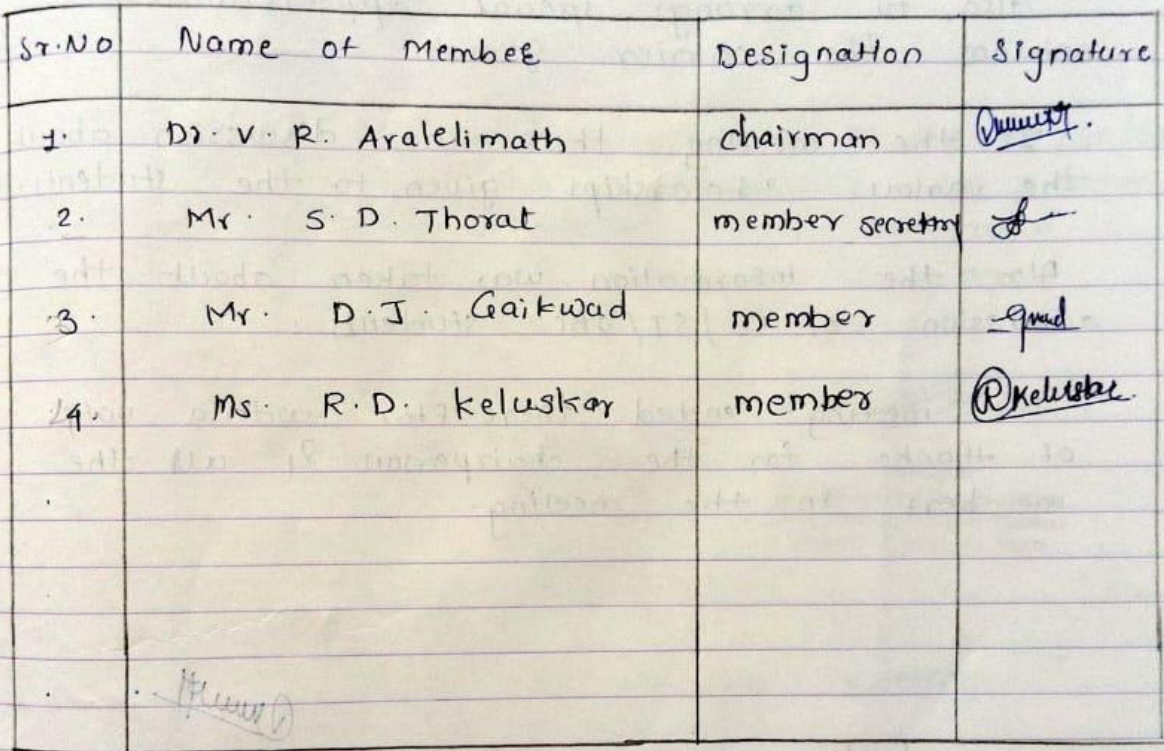 Sr.No Name of Membee Designation Signature
1. Dr. V R. Aralelimath chairman
2. Mr. S. D. Thorat member secretary
3. Mr. D.J. Gaikwad member
4. Ms. R.D. keluskar member RKeluskar